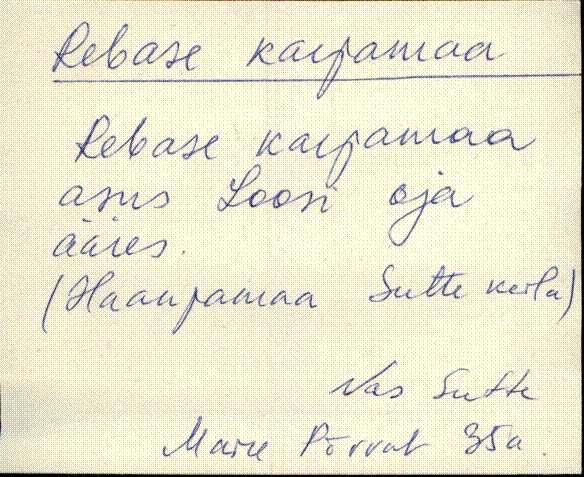 Rebase karjamaa
Rebase karjamaa
asus Loosi oja
ääres.
(Haanjamaa Sutte küla)
Vas Sutte
Maire Põrvat 35a.